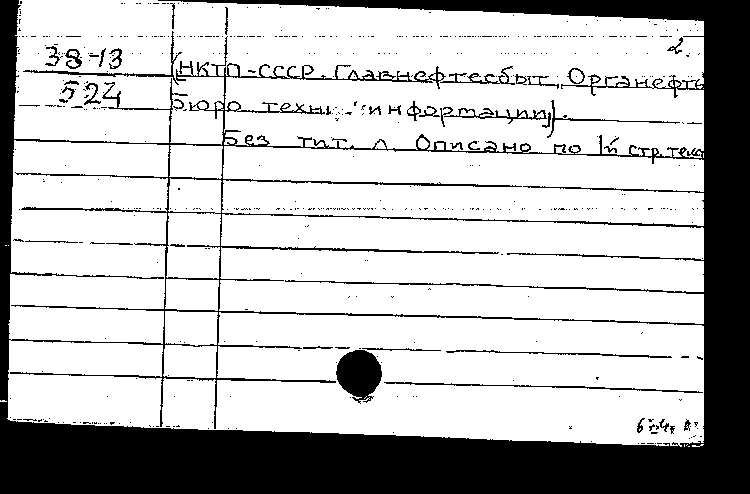 2.
38-13 (НКТП-СССР. Главнефтесбыт „Органефть
524 Бюро техни. информации).
Без тит. л. Описано по 1й стр. текс